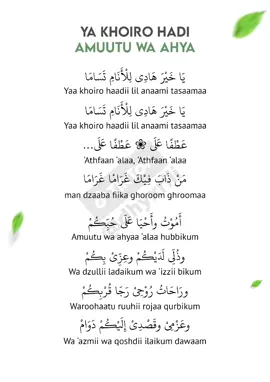 YA KHOIRO HADI
AMUUTU WA AHYA
يَا خَيْرَ هَادِى لِلْأَنَامِ تَسَامَا
Yaa khoiro haadii lil anaami tasaamaa
يَا خَيْرَ هَادِى لِلْأَنَامِ تَسَامَا
Yaa khoiro haadii lil anaami tasaamaa
عَطْفًا عَلَى ❀ عَطْفًا عَلَى...
'Athfaan 'alaa, 'Athfaan 'alaa
مَنْ ذَابَ فِيْكَ غَرَامًا غَرَامَا
man dzaaba fiika ghoroom ghroomaa
أَمُوْتُ وَأَحْيَا عَلَى حُبِّكُمْ
Amuutu wa ahyaa 'alaa hubbikum
وَذُلِّى لَدَيْكُمْ وَعِزِّىْ بِكُمْ
Wa dzullii ladaikum wa 'izzii bikum
وَرَاحَاتُ رُوْحِىْ رَجَا قُرْبِكُمْ
Waroohaatu ruuhii rojaa qurbikum
وَعَزْمِىْ وَقَصْدِىْ إِلَيْكُمْ دَوَامْ
Wa 'azmii wa qoshdii ilaikum dawaam